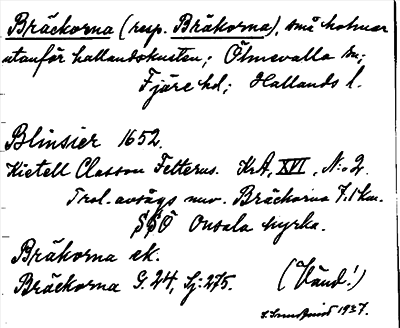 Bräckorna (resp. Bräkorna), små holmar
utanför hallandskusten; Ölmevalla sn;
Fjäre hd; Hallands l.
Blinsier 1652.
Kietell Classon Felterus. KrA, XVI, N:o 2.
Trol. avsågs nuv. Bräckorna 7.1 km.
SSÖ Onsala kyrka.
Bräkorna ek.
Bräckorna G. 24, Lj: 275.
(Vänd!)
1937.